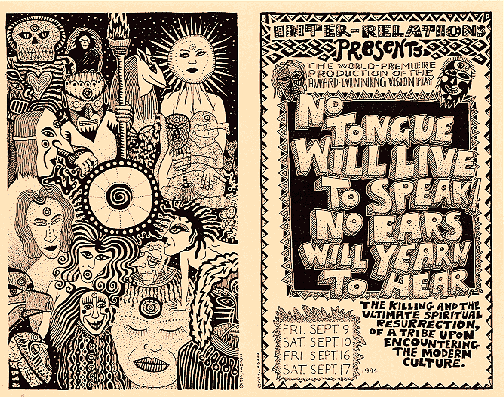 INTER-RELATIONS
PRESENTS
THE WORLD-PREMIERE
PRODUCTION OF THE
AWARD-WINNING VISION PLAY
NO
TONGUE
WILL LIVE
TO SPEAK
NO EARS
WILL YEARN
TO HEAR
THE KILLING AND THE
ULTIMATE SPIRITUAL
RESURRECTION,
OF A TRIBE UPON
ENCOUNTERING
THE MODERN
CULTURE.
FRI. SEPT 9
SAT. SEPT 10
FRI SEPT 16
SAT. SEPT. 17